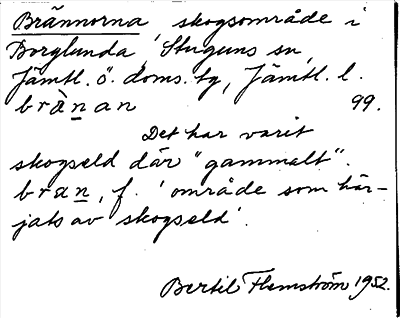 Brännorna skogsområde i
Borglunda, Stuguns sn,
Jämtl. ö. doms. tg, Jämtl. l.
brànan 99.
Det har varit
skogseld där "gammalt".
bran, f. 'område som här-
jats av skogseld'.
Bertil Flemström 1952.